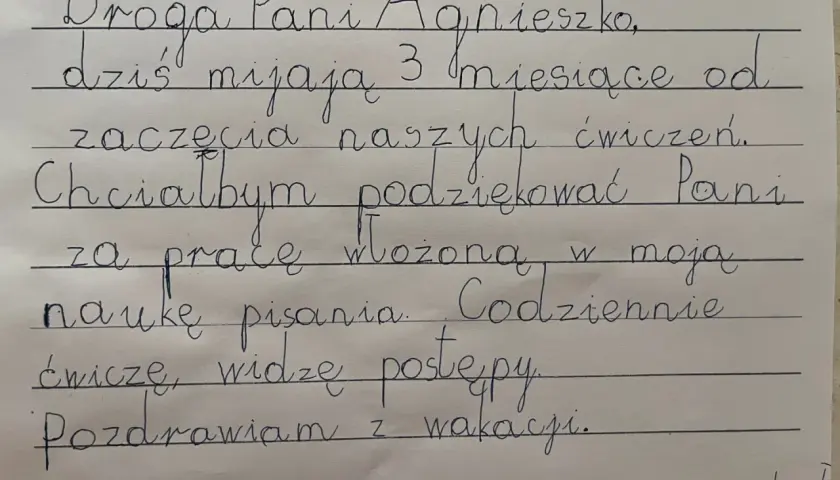 Droga Pani Agnieszko,
dziś mijają 3 miesiące od
zaczęcia naszych ćwiczeń.
Chciałbym podziękować Pani
za pracę włożoną w moją
naukę pisania. Codziennie
ćwiczę, widzę postępy.
Pozdrawiam z wakacji.